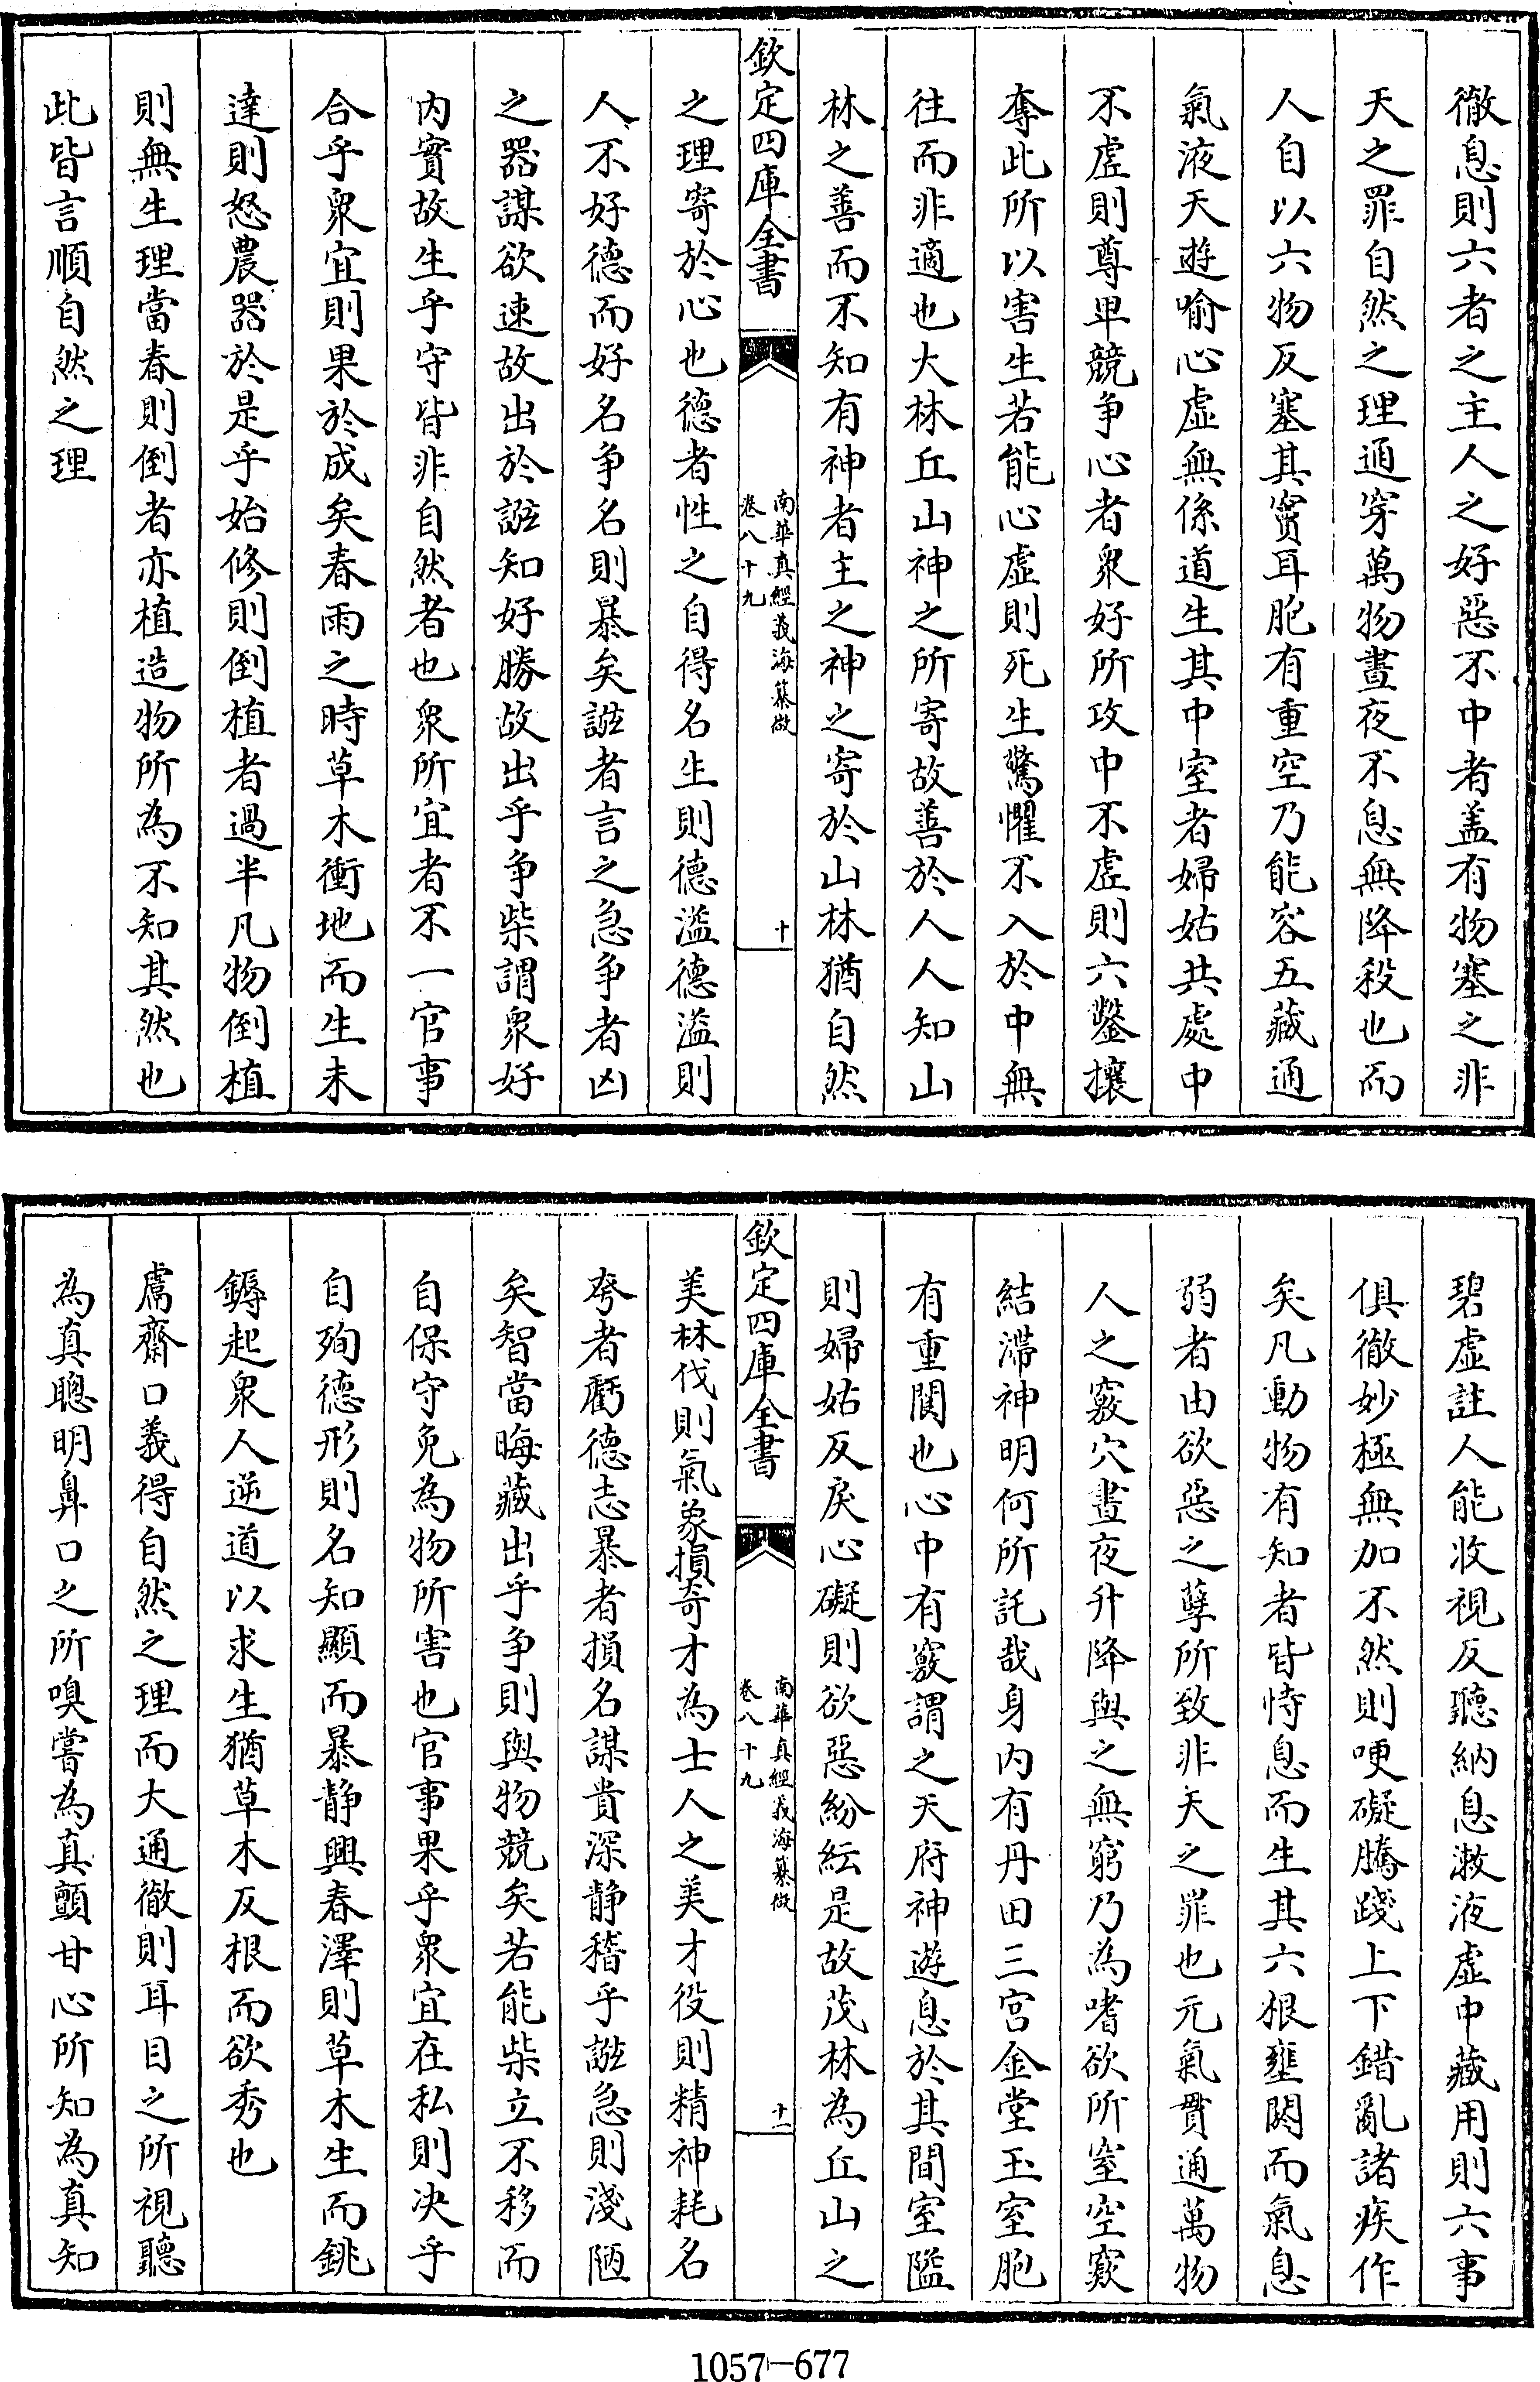 徹息則六者之主人之好惡不中者盖有物塞之非
天之罪自然之理通穿萬物晝夜不息無降殺也而
人自以六物反塞其竇耳胞有重空乃能容五藏通
氣液天遊喻心虛無係道生其中室者婦姑共處中
不虛則尊卑競争心者衆好所攻中不虛則六鑿攘
奪此所以害生若能心虛則死生驚懼不入於中無
往而非適也大林丘山神之所寄故善於人人知山
林之善而不知有神者主之神之寄於山林猶自然
欽定四庫全書
南華真經義海纂微
卷八十九
十
之理寄於心也德者性之自得名生則德溢德溢則
人不好德而好名争名則暴矣誸者言之急争者凶
之器謀欲速故出於誸知好勝故出乎争柴謂衆好
内實故生乎守皆非自然者也衆所宜者不一官事
合乎衆宜則果於成矣春雨之時草木衝地而生未
達則怒農器於是乎始修則倒植者過半凡物倒植
則無生理當春則倒者亦植造物所為不知其然也
此皆言順自然之理
碧虛註人能收視反聽納息漱液虛中藏用則六事
俱徹妙極無加不然則哽礙騰踐上下錯亂諸疾作
矣凡動物有知者皆恃息而生其六根壅閼而氣息
弱者由欲惡之孽所致非天之罪也元氣貫通萬物
人之竅穴晝夜升降與之無窮乃為嗜欲所窒空竅
結滯神明何所託哉身内有丹田三宫金堂玉室胞
有重閬也心中有竅謂之天府神遊息於其間室隘
則婦姑反戾心礙則欲惡紛紜是故茂林為丘山之
欽定四庫全書
南華真經義海纂微
卷八十九
十一
美林伐則氣象損奇才為士人之美才役則精神耗名
夸者虧德志暴者損名謀貴深静稽乎誸急則淺陋
矣智當晦藏出乎争則與物競矣若能柴立不移而
自保守免為物所害也官事果乎衆宜在私則决乎
自殉德形則名知顯而暴静興春澤則草木生而銚
鎒起衆人逆道以求生猶草木反根而欲秀也
鬳齋口義得自然之理而大通徹則耳目之所視聽
為真聰明鼻口之所嗅嘗為真顫甘心所知為真知
1057-677